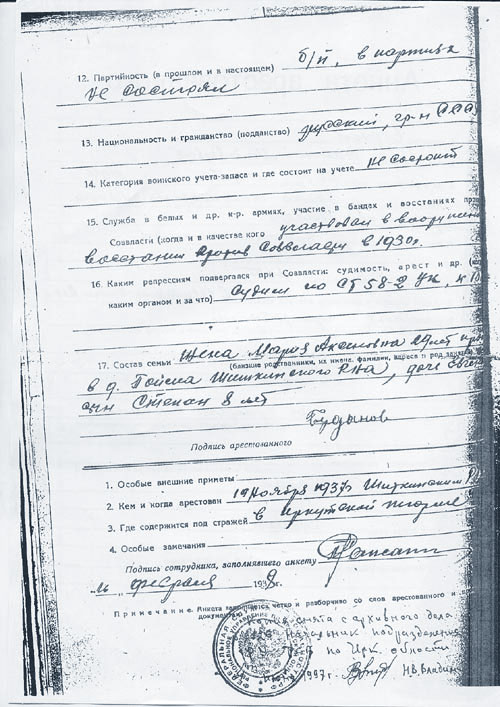 12. Партийность (в прошлом и в настоящем) б/п, в партиях
не состоял
13. Национальность и гражданство (подданство) русский, гр-н СССР
14. Категория воинского учета-запаса и где состоит на учете не состоит
15. Служба в белых и др. к-р. армиях, участие в бандах и восстаниях против
Совласти (когда и в качестве кого) участвовал в вооружен
восстании против Соввласти в 1930 г.
16. Каким репрессиям подвергался при Совласти: судимость, арест и др. (
каким органом и за что) Судим по СТ 58-2 УК, к 10
17. Состав семьи Жена Мария 29 лет
(близкие родственники, их имена, фамилии, адреса и род
в д. Шиткинского Р-на, дочь
сын Степан 8 лет
Подпись арестованного
1. Особые внешние приметы
2. Кем и когда арестован 19 ноября 1937 г. Шиткинским Р
3. Где содержится под стражей в Иркутской тюрьме
4. Особые замечания
Подпись сотрудника, заполнявшего анкету
февраля 1938 г.
Примечание. Анкета заполняется четко и разборчиво со слов арестованного и
докумен
снята с архивного дела
Начальник подразделения
по Ирк. области
1997 г. Н.В.